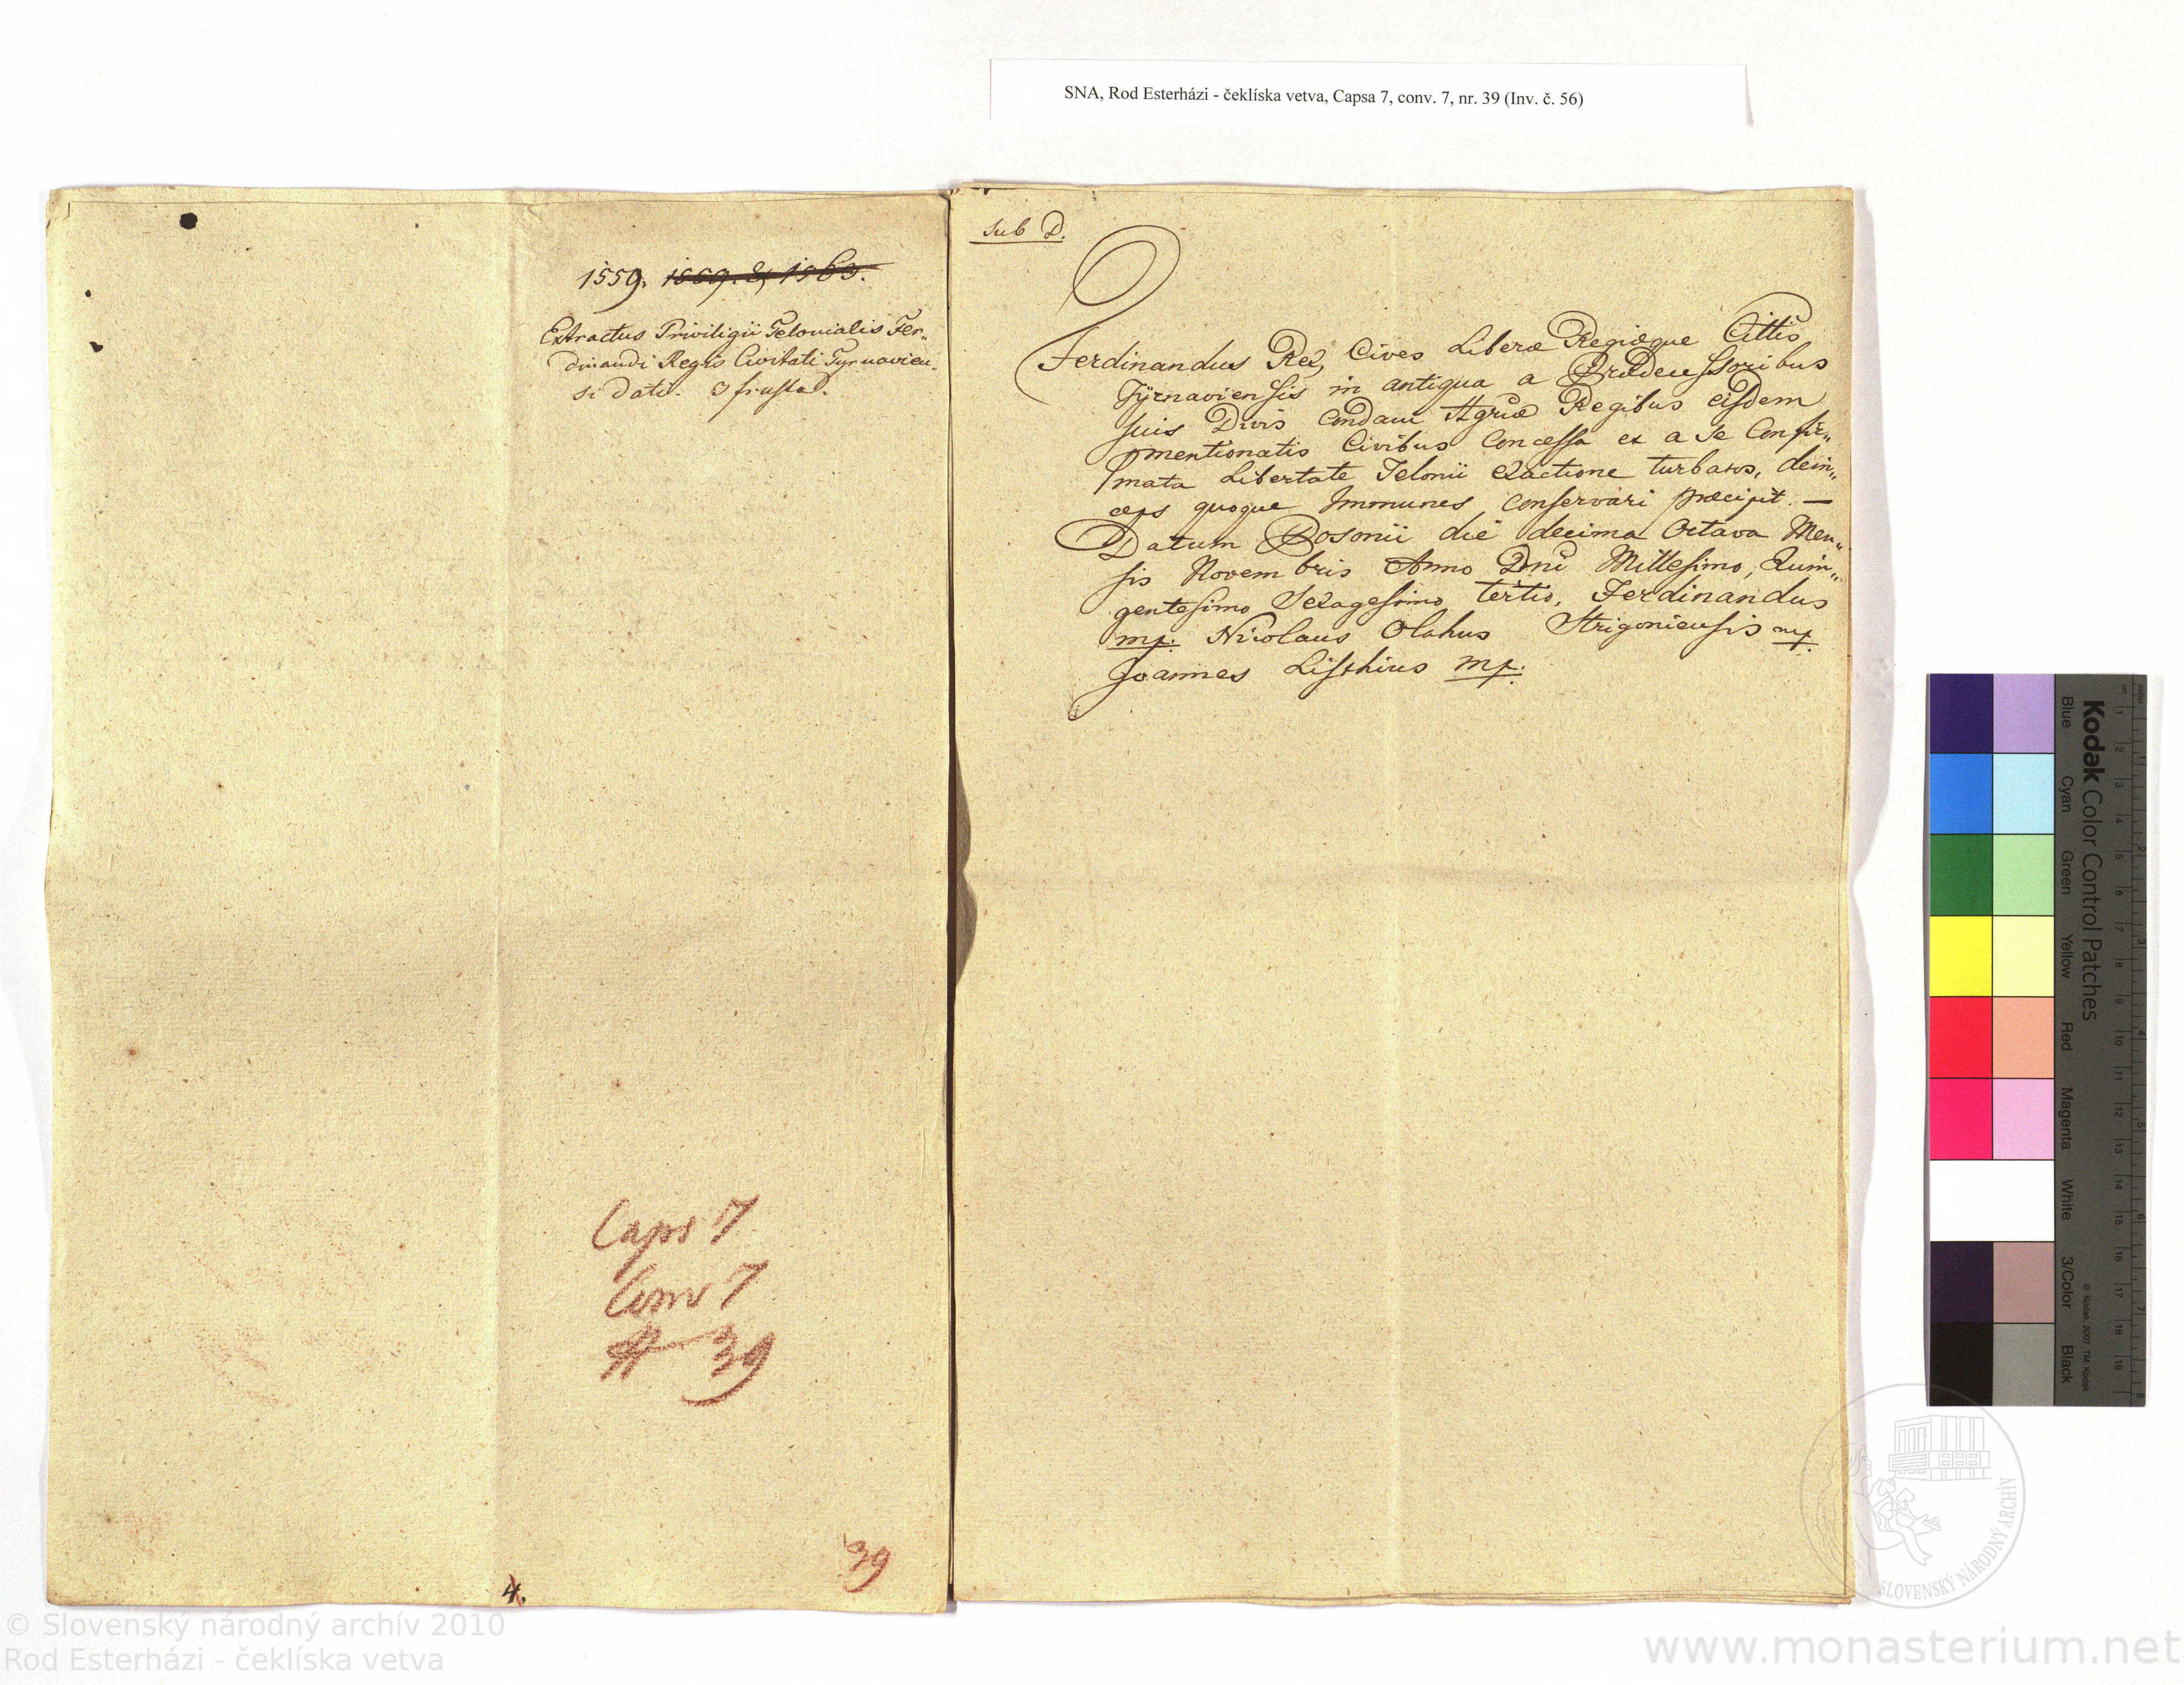 SNA, Rod Esterházi - čeklíska vetva, Capsa 7, conv. 7, nr. 39 (Inv. č. 56)
1559. 1559. & 1563.
Extractus Priviligii Telonialis Fer„
dinandi Regis Civitati Tyrnavien„
si dati. 3 frusta.
Caps 7
Conv 7
# 39
39
4.
Sub D.
Ferdinandus Rex, Cives Liberæ Regiæque Cittis
Tÿrnaviensis in antiqua a Prædecessoribus
suis Divis Condam Hgriæ Regibus eisdem
mentionatis Civibus Concessa et a Se Confir„
mata Libertate Telonii exactione turbatos, dein„
ceps quoque Immunes conservari præcipit. —
Datum Posonii die decima Octava Men„
sis Novembris Anno Dni Millesimo, Quin„
gentesimo Sexagesimo tertio, Ferdinandus
mp. Nicolaus Olahus Strigoniensis mp.
Joannes Listhius mp.
Kodak Color Control Patches
Blue Cyan Green Yellow Red Magenta White 3/Color Black
© Kodak, 2007 TM: Kodak
SLOVENSKÝ NÁRODNÝ ARCHÍV
© Slovenský národný archív 2010
Rod Esterházi - čeklíska vetva
www.monasterium.net